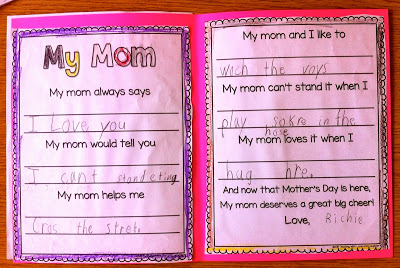 My Mom
My mom always says
I Love you
My mom would tell you
I can't standeting
My mom helps me
Cros the stret.
My mom and I like to
wach the voys
My mom can't stand it when I
play sokre in the
hose
My mom loves it when I
hug hre.
And now that Mother's Day is here,
My mom deserves a great big cheer!
Love, Richie